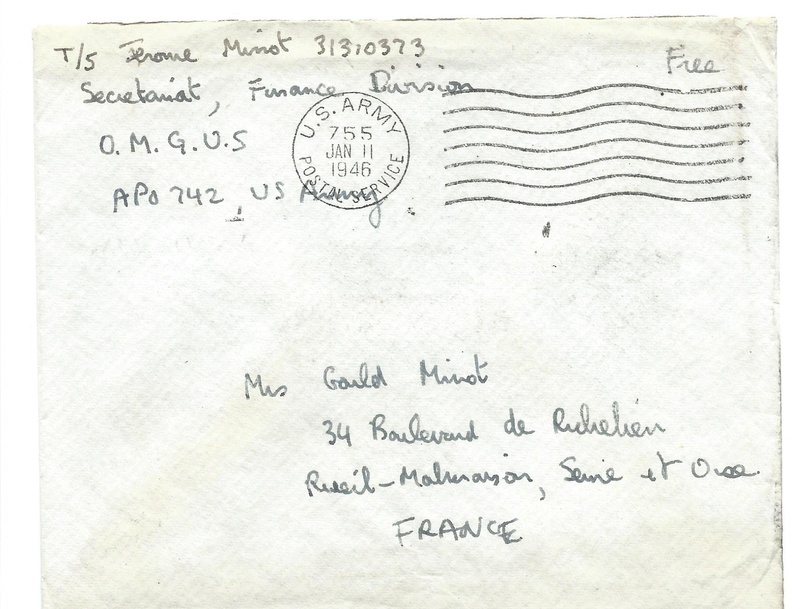 T/5 Jerome Minot 31310373
Free
Secretariat, Finance Division
O.M.G.U.S
APO 742, US Army
U.S. ARMY
755
JAN 11
1946
POSTAL SERVICE
Mrs Gould Minot
34 Boulevard de Richelieu
Rueil-Malmaison, Seine et Oise
FRANCE